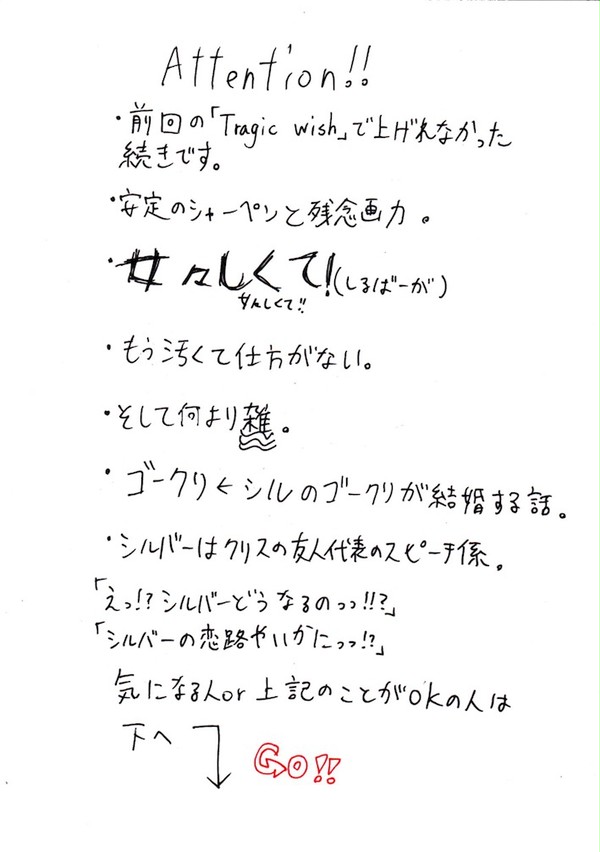 Attention!!
・前回の「Tragic wish」で上げれなかった
続きです。
・安定のシャーペンと残念画力。
・女々しくて!(しるばーが)
女々しくて!!
・もう汚くて仕方がない。
・そして何より雑。
・ゴークリ←シルのゴークリが結婚する話。
・シルバーはクリスの友人代表のスピーチ係。
「えっ!?シルバーどうなるのっっ!!?」
「シルバーの恋路やいかにっっ!?」
気になる人or上記のことがOKの人は
下へ
GO!!